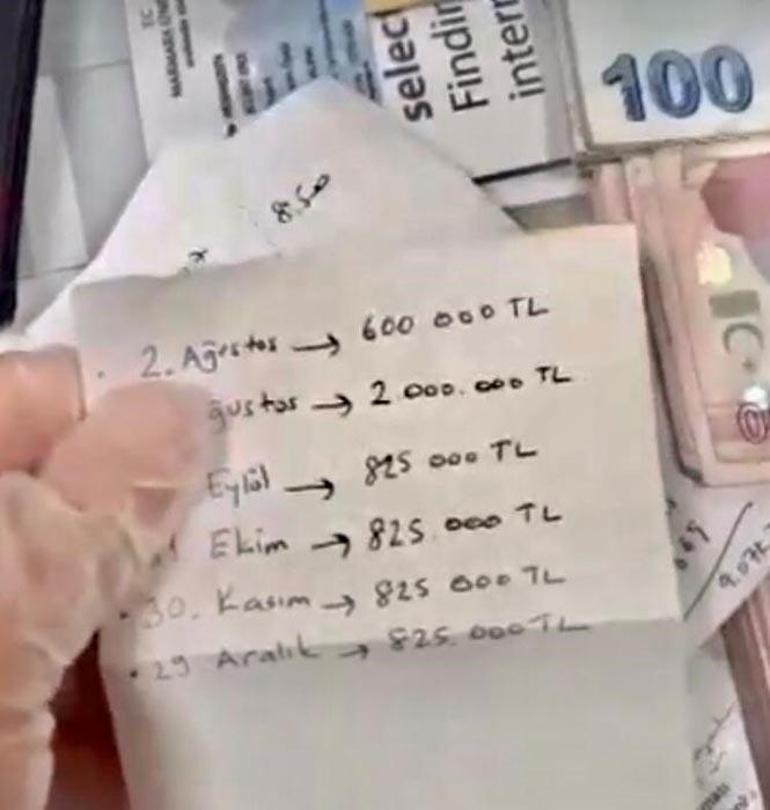 TC
MARMARA
select
Findin
inter
100
8.50
2. Ağustos → 600 000 TL
ğustos → 2 000.000 TL
Eylül → 825 000 TL
Ekim → 825.000 TL
30. Kasım → 825 000 TL
29 Aralık → 825.000 TL